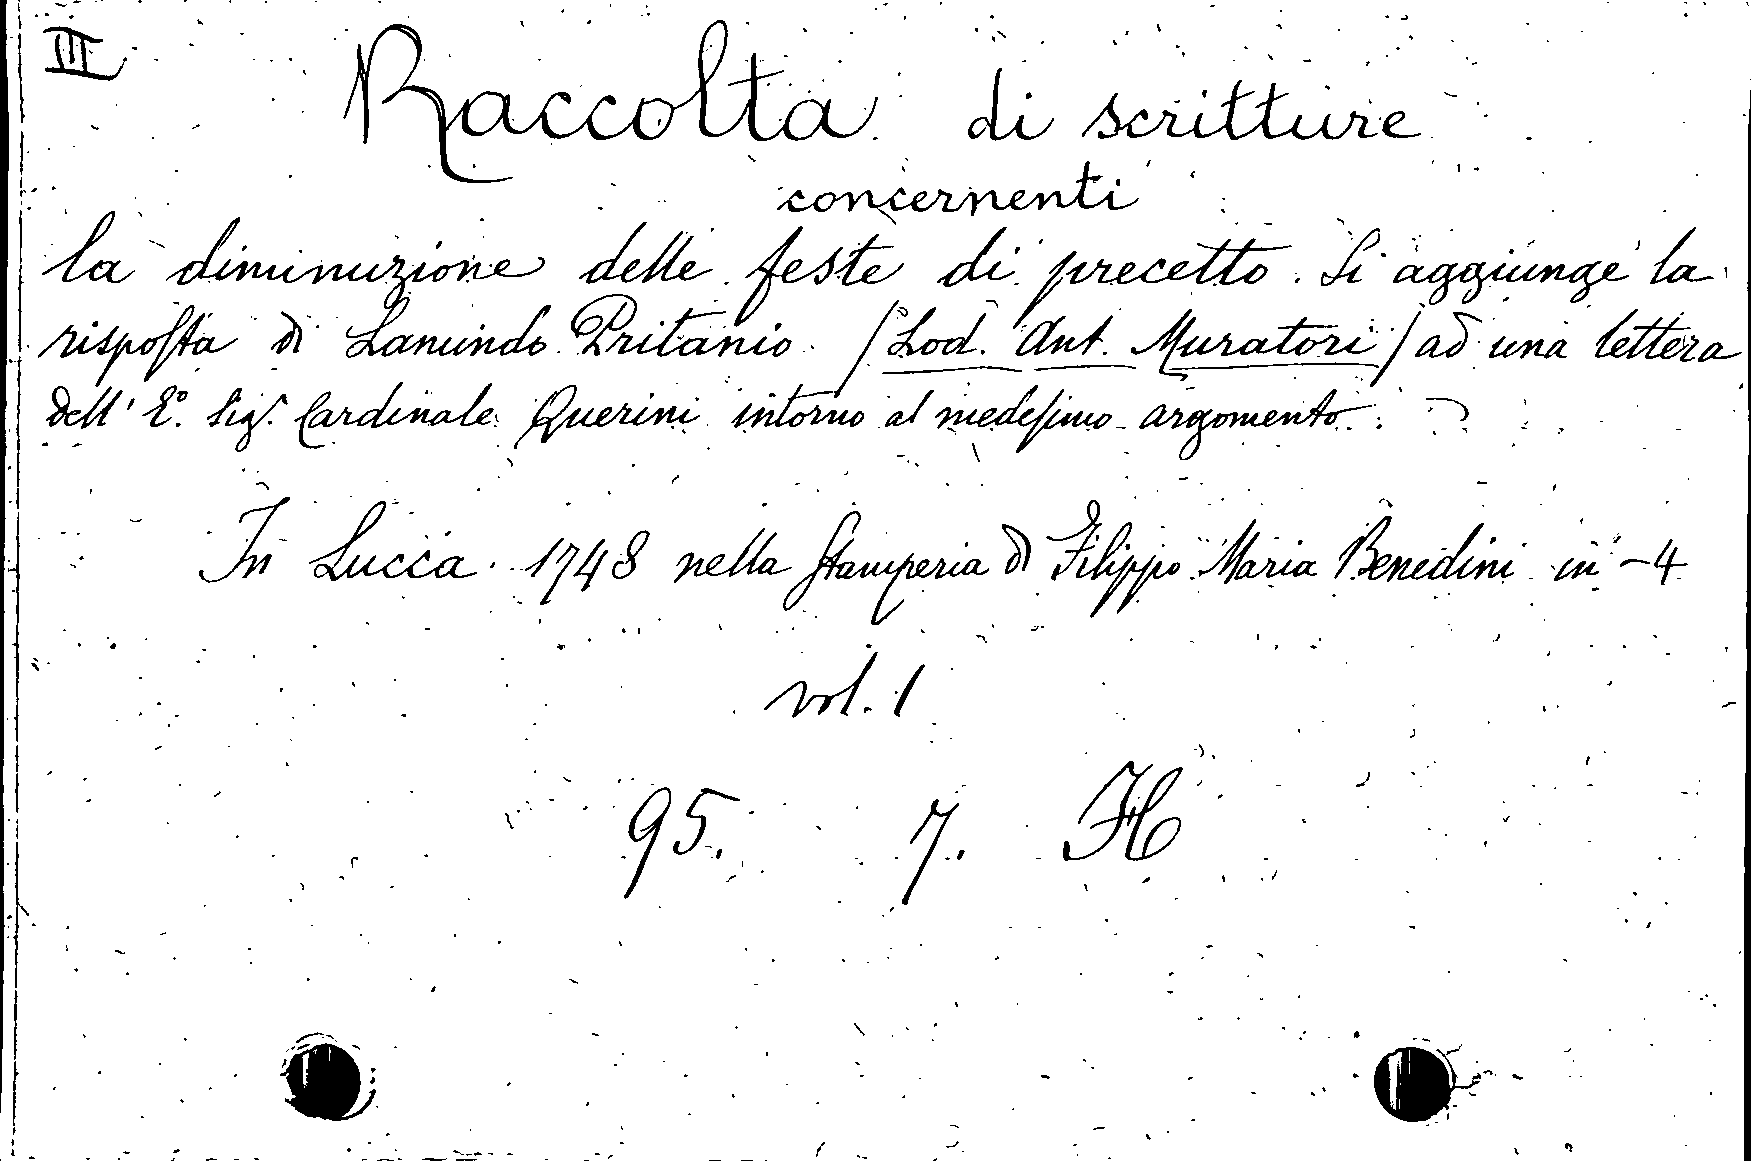 III
Raccolta di scritture
concernenti
la diminuzione delle feste di precetto. Si aggiunge la
rispoſta di Lamindo Pritanio (Lod. Ant. Muratori) ad una lettera
dell' E.º Sig.r Cardinale Querini intorno al medeſimo argomento.
In Lucca. 1748 nella Stamperia di Filippo Maria Benedini in-4
vol. 1
95. 7. H